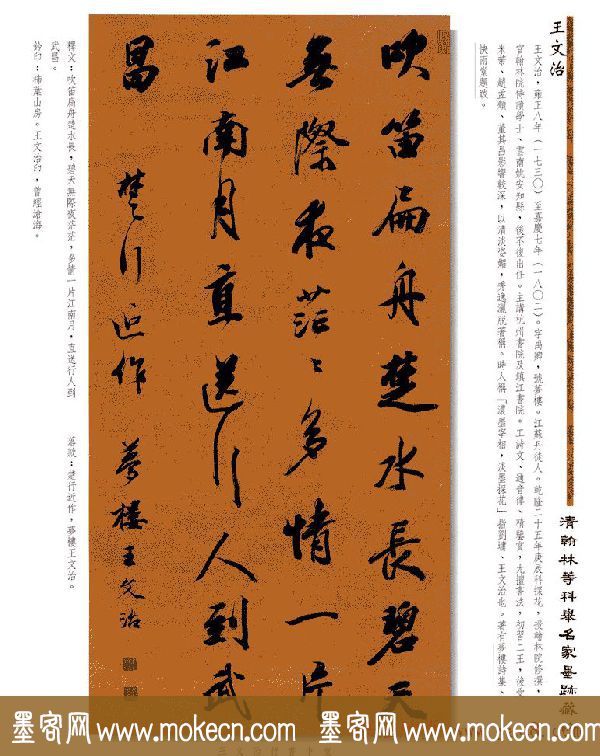 清翰林等科舉名家墨跡
王文治
王文治，雍正八年（一七三〇）至嘉慶七年（一八〇二）。字禹卿，號夢樓。江蘇丹徒人。乾隆二十五年庚辰科探花，授翰林院修撰，
官翰林院侍讀學士、雲南姚安知縣，後不復出仕。主講杭州書院及鎮江書院。工詩文、通音律、精鑒賞，尤擅書法，初習二王，後受
米芾、董其昌影響較深，以清淡姿媚，秀逸瀟脫著稱。時人稱「濃墨宰相，淡墨探花」指劉墉、王文治也。著有夢樓詩集、
快雨堂題跋。
吹笛扁舟楚水長碧天
無際夜茫〻多情一片
江南月直送行人到武
昌 楚行近作 夢樓王文治
釋文：吹笛扁舟楚水長，碧天無際夜茫茫，多情一片江南月，直送行人到
武昌。
落款：楚行近作，夢樓王文治。
鈐印：柿葉山房。王文治印，曾經滄海。
墨客网 www.mokecn.com 墨客网 www.mokecn.com